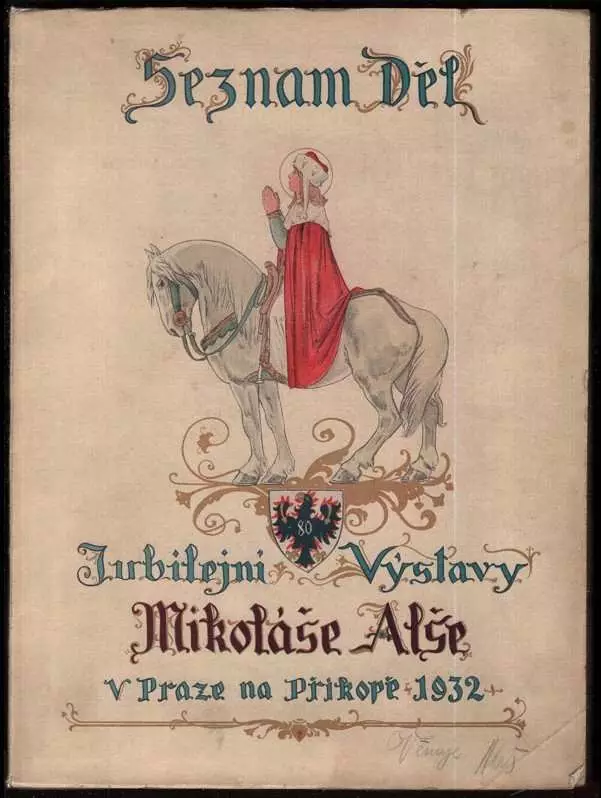 Seznam Děl
80
Jubilejní Výstavy
Mikoláše Alše
v Praze na Příkopě 1932
Věnuje